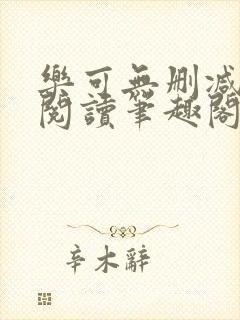 樂可無刪減
閱讀筆趣閣
辛木辭